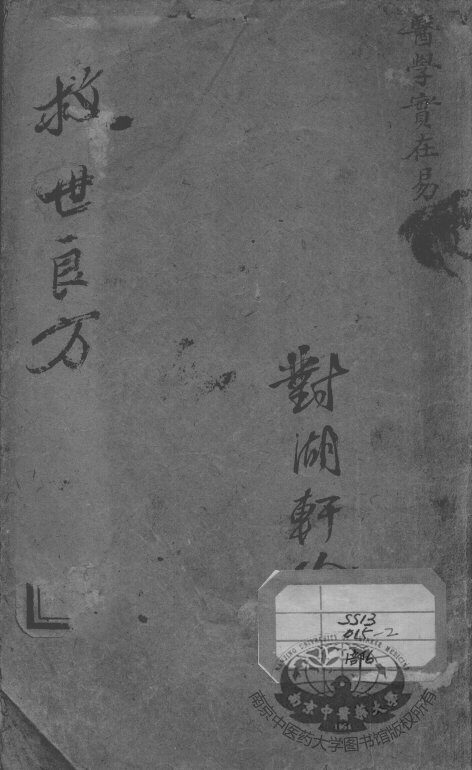 醫學實在易
對湖軒
救世良方
SS13
015-2
南京中醫藥大學
1954
南京中医药大学图书馆版权所有